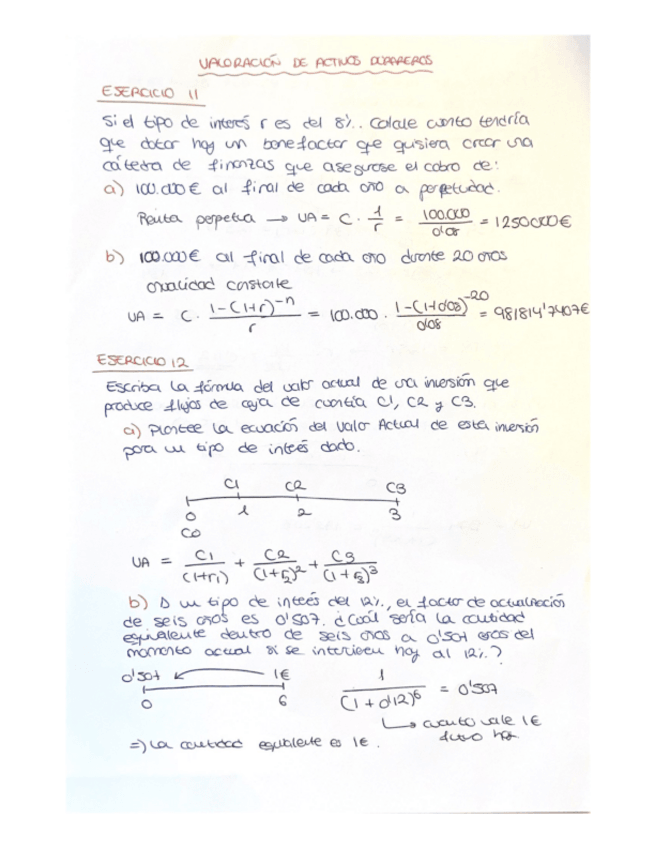 VALORACIÓN DE ACTIVOS DURADEROS
EJERCICIO 11
Si el tipo de interés r es del 8%. Calcule cuanto tendría
que dotar hoy un benefactor que quisiera crear una
cátedra de finanzas que asegurase el cobro de:
a) 100.000€ al final de cada año a perpetuidad.
Renta perpetua → VA = C · 1/r = 100.000/0'08 = 1250000€
b) 100.000€ al final de cada año durante 20 años
anualidad constante
VA = C · 1-(1+r)^-n / r = 100.000 · 1-(1+0'08)^-20 / 0'08 = 981814'7407€
EJERCICIO 12
Escriba la fórmula del valor actual de una inversión que
produce flujos de caja de cuantía C1, C2 y C3.
a) Plantee la ecuación del Valor Actual de esta inversión
para un tipo de interés dado.
C1 C2 C3
0 1 2 3
C0
VA = C1/(1+r1) + C2/(1+r2)^2 + C3/(1+r3)^3
b) A un tipo de interés del 12%, el factor de actualización
de seis años es 0'507. ¿Cuál sería la cantidad
equivalente dentro de seis años a 0'507 euros del
momento actual si se invierten hoy al 12%?
0'507 1€
0 6
1/(1+0'12)^6 = 0'507
↳ cuanto vale 1€
futuro hoy.
⇒) La cantidad equivalente es 1€.